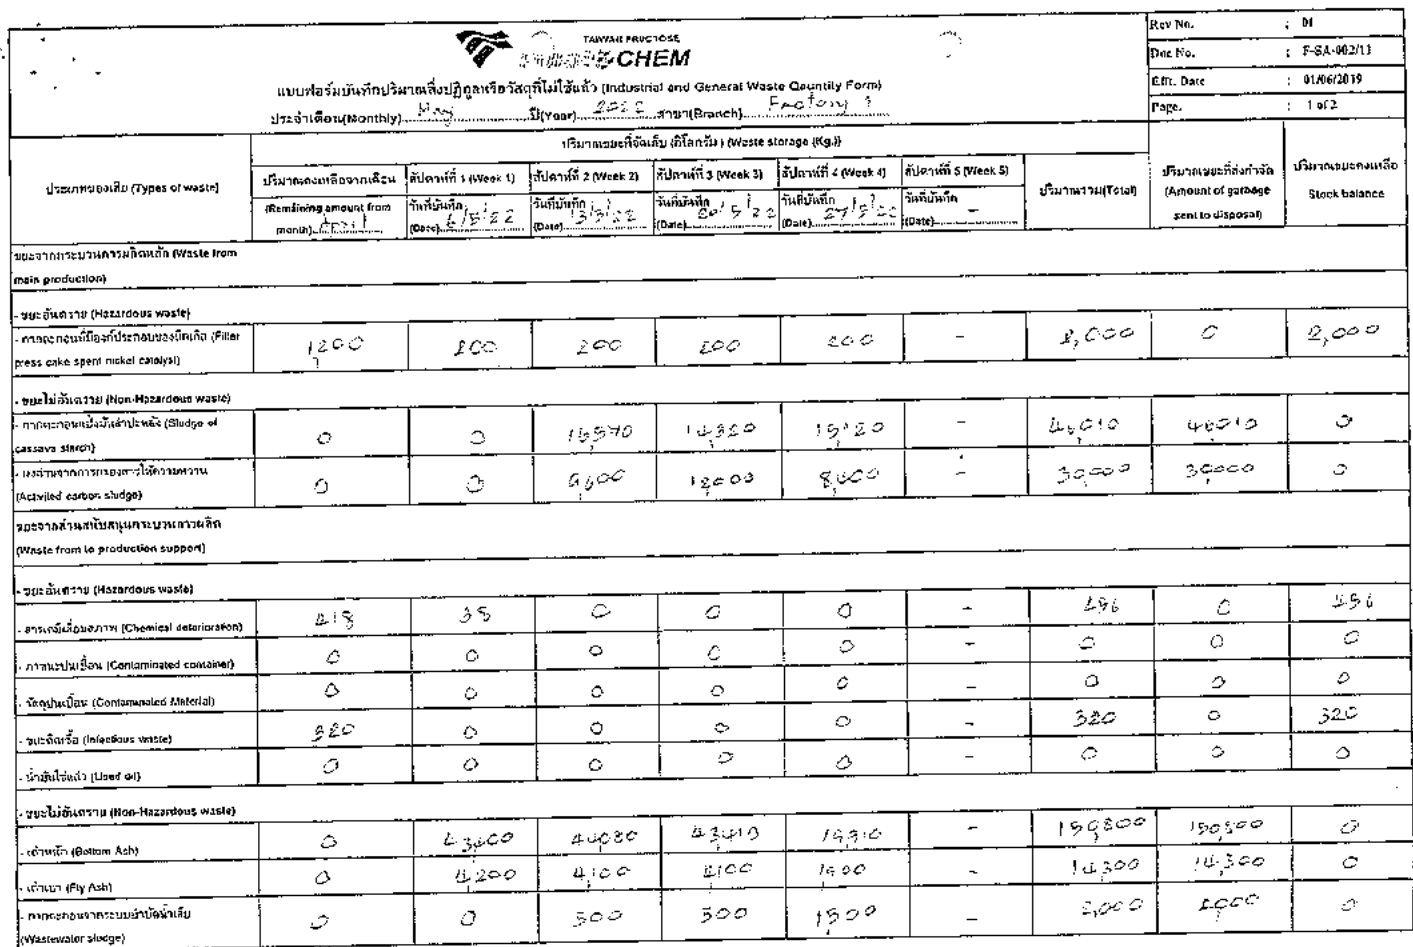 Rev No. : 01
TAIWAN FRUCTOSE
CHEM
Doc No. : F-SA-002/11
แบบฟอร์มบันทึกปริมาณสิ่งปฏิกูลหรือวัสดุที่ไม่ใช้แล้ว (Industrial and General Waste Qauntity Form)
Effc. Date : 01/06/2019
ประจำเดือน(Monthly) May ปี(Year) 2022 สาขา(Branch) Factory 1
Page. : 1 of 2
ปริมาณขยะที่จัดเก็บ (กิโลกรัม) (Waste storage (Kg.))
ประเภทของเสีย (Types of waste)
ปริมาณคงเหลือจากเดือน (Remaining amount from month) April
สัปดาห์ที่ 1 (Week 1) วันที่บันทึก (Date) 6/5/22
สัปดาห์ที่ 2 (Week 2) วันที่บันทึก (Date) 13/5/22
สัปดาห์ที่ 3 (Week 3) วันที่บันทึก (Date) 20/5/22
สัปดาห์ที่ 4 (Week 4) วันที่บันทึก (Date) 27/5/22
สัปดาห์ที่ 5 (Week 5) วันที่บันทึก (Date) -
ปริมาณรวม(Total)
ปริมาณขยะที่ส่งกำจัด (Amount of garbage sent to disposal)
ปริมาณขยะคงเหลือ Stock balance
ขยะจากกระบวนการผลิตหลัก (Waste from main production)
- ขยะอันตราย (Hazardous waste)
- กากตะกอนที่มีองค์ประกอบของนิกเกิล (Filter press cake spent nickel catalyst) 1,200 200 200 200 200 - 2,000 0 2,000
- ขยะไม่อันตราย (Non-Hazardous waste)
- กากตะกอนแป้งมันสำปะหลัง (Sludge of cassava starch) 0 0 16,570 14,320 15,120 - 46,010 46,010 0
- ผงถ่านจากการกรองสารให้ความหวาน (Activited carbon sludge) 0 0 9,600 12,000 8,400 - 30,000 30,000 0
ขยะจากส่วนสนับสนุนกระบวนการผลิต (Waste from to production support)
- ขยะอันตราย (Hazardous waste)
- สารเคมีเสื่อมสภาพ (Chemical deterioration) 418 38 0 0 0 - 456 0 456
- ภาชนะปนเปื้อน (Contaminated container) 0 0 0 0 0 - 0 0 0
- วัสดุปนเปื้อน (Contaminated Material) 0 0 0 0 0 - 0 0 0
- ขยะติดเชื้อ (Infectious waste) 320 0 0 0 0 - 320 0 320
- น้ำมันใช้แล้ว (Used oil) 0 0 0 0 0 - 0 0 0
- ขยะไม่อันตราย (Non-Hazardous waste)
- เถ้าหนัก (Bottom Ash) 0 43,400 44,080 43,410 19,910 - 150,800 150,800 0
- เถ้าเบา (Fly Ash) 0 4,200 4,100 4,100 1,900 - 14,300 14,300 0
- กากตะกอนจากระบบบำบัดน้ำเสีย (Wastewater sludge) 0 0 500 500 1,500 - 0